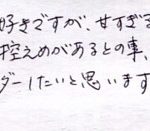 好きですが、甘すぎる
控えめがあるとの事、
ダーしたいと思います